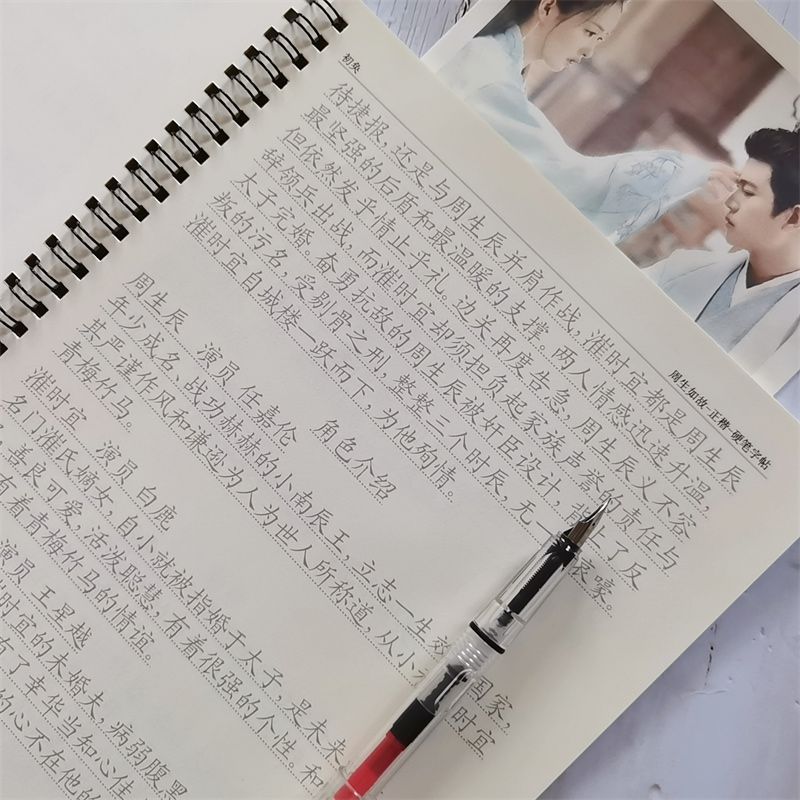 初奂
周生如故-正楷-硬笔字帖
待捷报,还是与周生辰并肩作战,漼时宜都是周生辰
最坚强的后盾和最温暖的支撑。两人情感迅速升温,
但依然发乎情止乎礼。边关再度告急,周生辰义不容
辞领兵出战,而漼时宜却须担负起家族声誉的责任与
太子完婚。奋勇抗敌的周生辰被奸臣设计,背上了反
叛的污名,受剔骨之刑,整整三个时辰,无一 哀嚎。
漼时宜自城楼一跃而下,为他殉情。
周生辰 演员 任嘉伦 角色介绍
年少成名、战功赫赫的小南辰王,立志一生效 国家,
其严谨作风和谦逊为人为世人所称道,从小 时宜
青梅竹马。
漼时宜 演员 白鹿
名门漼氏嫡女,自小就被指婚于太子,是未来
,善良可爱,活泼聪慧,有着很强的个性。和
有着青梅竹马的情谊。
演员 王星越
时宜的未婚夫,病弱腹黑
有了幸华当知心佳
的心不在他的